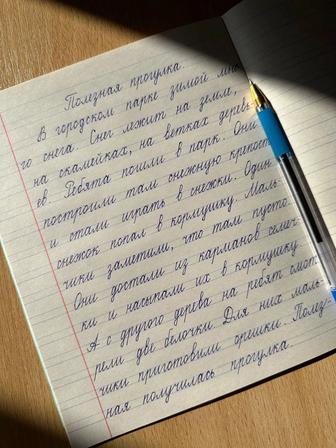 Полезная прогулка.
В городском парке зимой мно
го снега. Снег лежит на земле,
на скамейках, на ветках деревь
ев. Ребята пошли в парк. Они
построили там снежную крепость
и стали играть в снежки. Один
снежок попал в кормушку. Маль-
чики заметили, что там пусто.
Они достали из карманов семеч-
ки и насыпали их в кормушку.
А с другого дерева на ребят смот
рели две белочки. Для них маль-
чики приготовили орешки. Полез-
ная получилась прогулка.